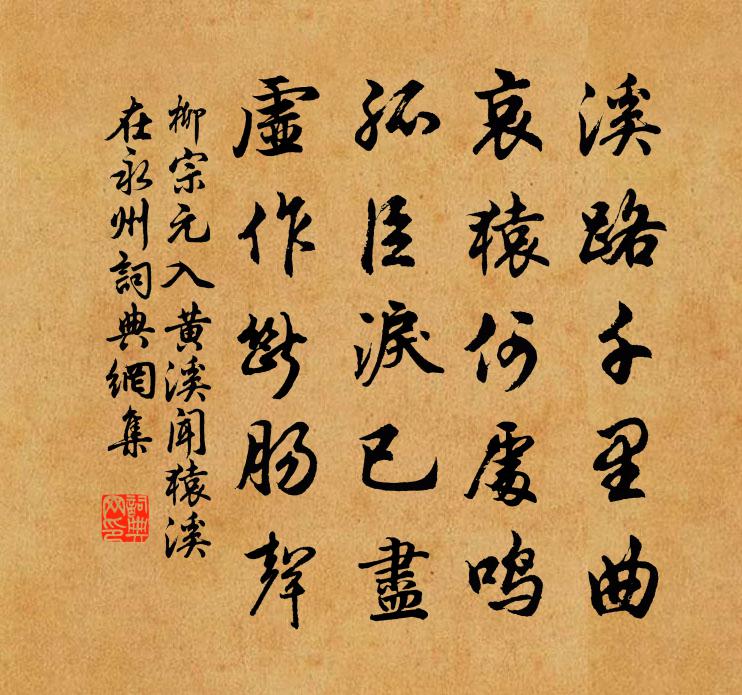 溪路千里曲
哀猿何處鳴
孤臣淚已盡
虛作斷腸聲
柳宗元入黃溪聞猿溪
在永州詞典網集
詞典網印